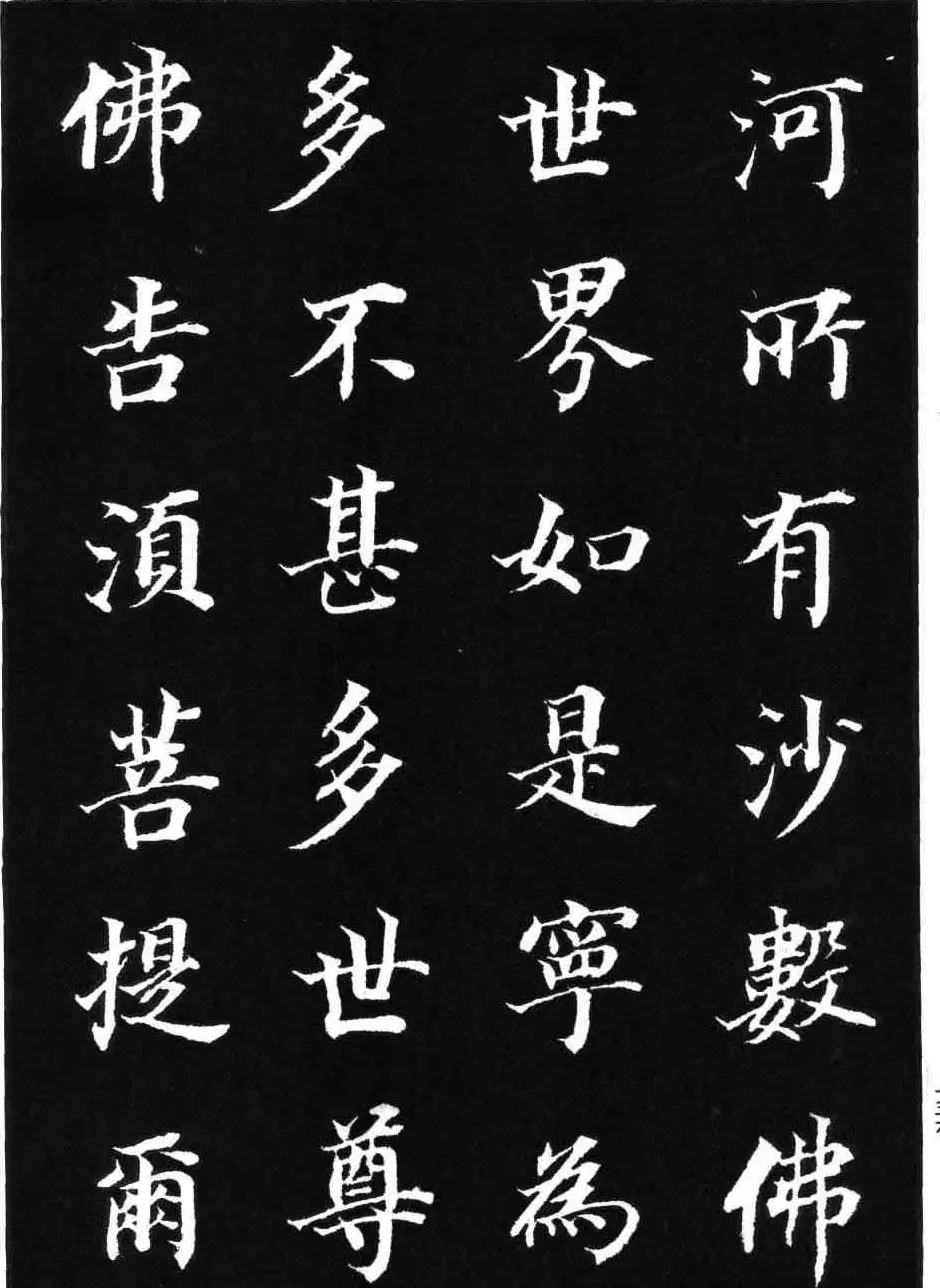 河所有沙數佛
世界如是寧為
多不甚多世尊
佛告須菩提爾